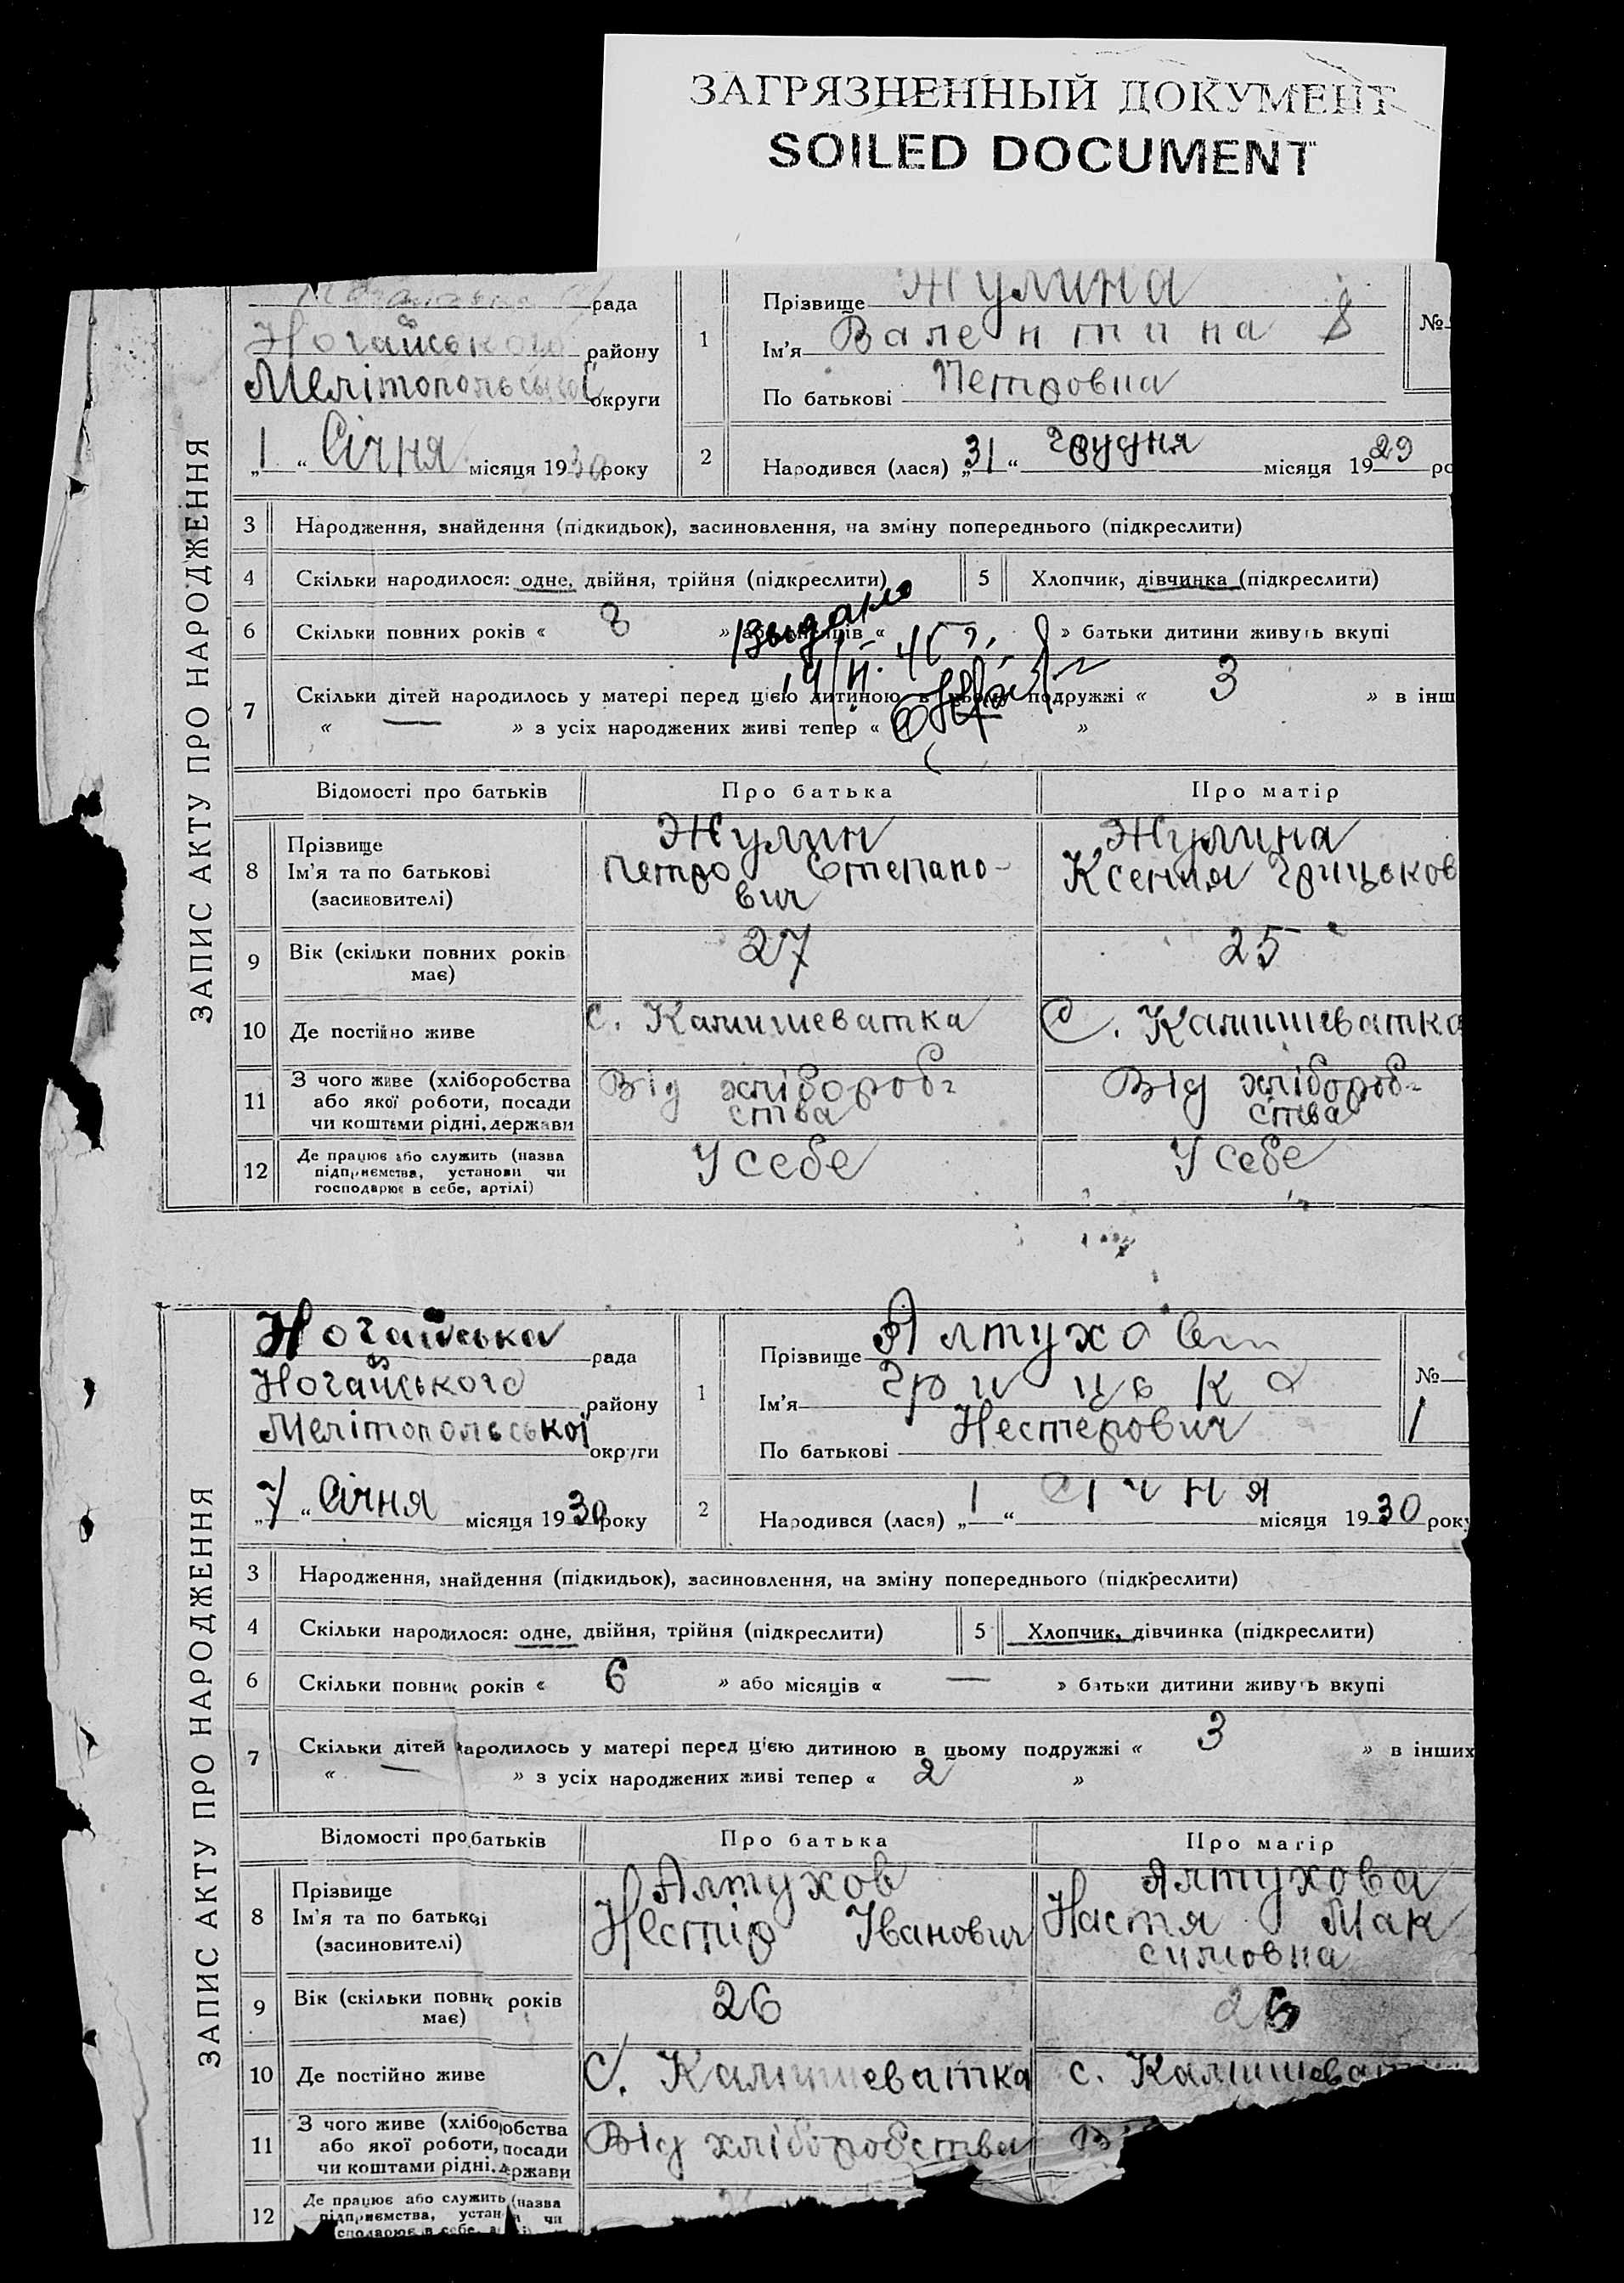 ЗАГРЯЗНЕННЫЙ ДОКУМЕНТ
SOILED DOCUMENT
ЗАПИС АКТУ ПРО НАРОДЖЕННЯ
рада
Ногайського району
Мелітопольської округи
„1“ Січня місяця 1930 року
1
Прізвище Жулина
Ім'я Валентина
По батькові Петровна
№
2
Народився (лася) „31“ Грудня місяця 1929 ро
3 Народження, знайдення (підкидьок), засиновлення, на зміну попереднього (підкреслити)
4 Скільки народилося: одне, двійня, трійня (підкреслити)
5 Хлопчик, дівчинка (підкреслити)
6 Скільки повних років « 8 » або місяців « — » батьки дитини живуть вкупі
7 Скільки дітей народилось у матері перед цією дитиною в цьому подружжі « 3 » в інш
« — » з усіх народжених живі тепер « »
Відомості про батьків
Про батька
Про матір
8 Прізвище
Ім'я та по батькові
(засиновителі)
Жулин
Петро Степано-
вич
Жулина
Ксения Грицьков
9 Вік (скільки повних років
має)
27
25
10 Де постійно живе
с. Калишеватка
С. Калишеватка
11 З чого живе (хліборобства
або якої роботи, посади
чи коштами рідні, держави
Від хлібороб-
ства
Від хлібороб-
ства
12 Де працює або служить (назва
підприємства, установи чи
господарює в себе, артілі)
У себе
У себе
ЗАПИС АКТУ ПРО НАРОДЖЕННЯ
Ногайська рада
Ногайського району
Мелітопольської округи
„7“ Січня місяця 1930 року
1
Прізвище Алтухов
Ім'я Грицько
По батькові Нестерович
№
1
2
Народився (лася) „1“ Січня місяця 1930 року
3 Народження, знайдення (підкидьок), засиновлення, на зміну попереднього (підкреслити)
4 Скільки народилося: одне, двійня, трійня (підкреслити)
5 Хлопчик, дівчинка (підкреслити)
6 Скільки повних років « 6 » або місяців « — » батьки дитини живуть вкупі
7 Скільки дітей народилось у матері перед цією дитиною в цьому подружжі « 3 » в інших
« — » з усіх народжених живі тепер « 2 »
Відомості про батьків
Про батька
Про матір
8 Прізвище
Ім'я та по батькові
(засиновителі)
Алтухов
Нестір Іванович
Алтухова
Настя Мак
симовна
9 Вік (скільки повних років
має)
26
26
10 Де постійно живе
С. Калишеватка
с. Калишеват
11 З чого живе (хліборобства
або якої роботи, посади
чи коштами рідні, держави
Від хліборобства
Ві
12 Де працює або служить (назва
підприємства, установи чи
господарює в себе, а